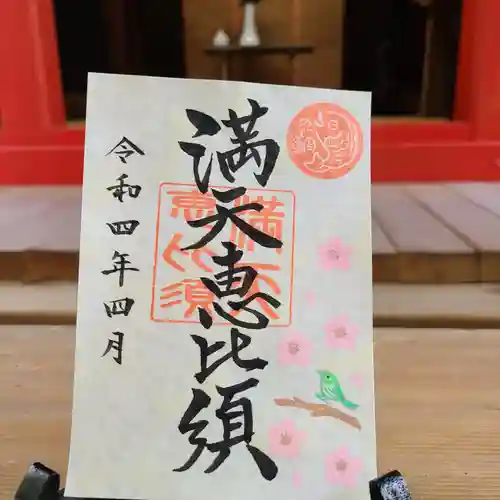 満天恵比須
令和四年四月
満天
恵比須